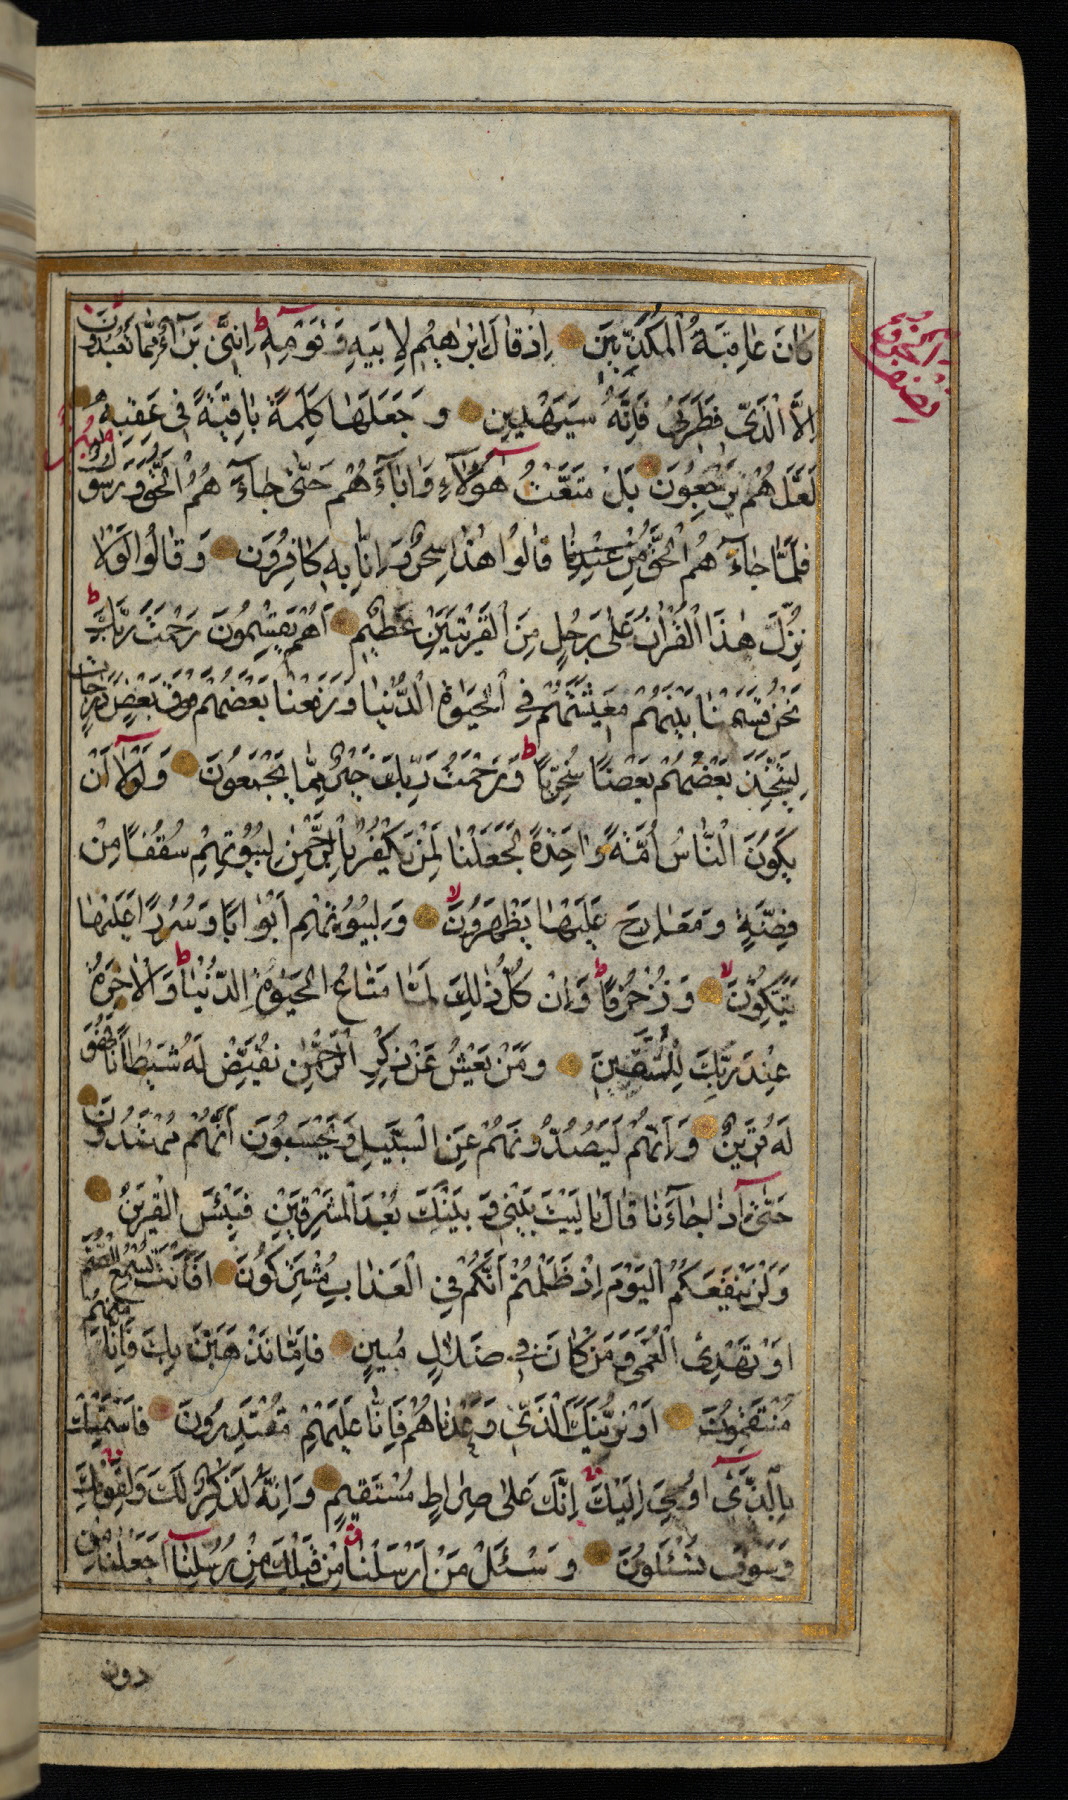 كَانَ عَاقِبَةُ الْمُكَذِّبِينَ اِذْ قَالَ اِبْرٰهِيمُ لِاَبِيهِ وَقَوْمِهِ اِنَّنِي بَرَاءٌ مِمَّا تَعْبُدُونَ
اِلَّا الَّذِي فَطَرَنِي فَاِنَّهُ سَيَهْدِينِ وَجَعَلَهَا كَلِمَةً بَاقِيَةً فِي عَقِبِهِ
لَعَلَّهُمْ يَرْجِعُونَ بَلْ مَتَّعْتُ هٰؤُلَاءِ وَاٰبَاءَهُمْ حَتّٰى جَاءَهُمُ الْحَقُّ وَرَسُولٌ مُبِينٌ
فَلَمَّا جَاءَهُمُ الْحَقُّ مِنْ عِنْدِنَا قَالُوا هٰذَا سِحْرٌ وَاِنَّا بِهِ كَافِرُونَ وَقَالُوا لَوْلَا
نُزِّلَ هٰذَا الْقُرْاٰنُ عَلٰى رَجُلٍ مِنَ الْقَرْيَتَيْنِ عَظِيمٍ اَهُمْ يَقْسِمُونَ رَحْمَتَ رَبِّكَ
نَحْنُ قَسَمْنَا بَيْنَهُمْ مَعِيشَتَهُمْ فِي الْحَيٰوةِ الدُّنْيَا وَرَفَعْنَا بَعْضَهُمْ فَوْقَ بَعْضٍ دَرَجَاتٍ
لِيَتَّخِذَ بَعْضُهُمْ بَعْضًا سُخْرِيًّا وَرَحْمَتُ رَبِّكَ خَيْرٌ مِمَّا يَجْمَعُونَ وَلَوْلَا اَنْ
يَكُونَ النَّاسُ اُمَّةً وَاحِدَةً لَجَعَلْنَا لِمَنْ يَكْفُرُ بِالرَّحْمٰنِ لِبُيُوتِهِمْ سُقُفًا مِنْ
فِضَّةٍ وَمَعَارِجَ عَلَيْهَا يَظْهَرُونَ وَلِبُيُوتِهِمْ اَبْوَابًا وَسُرُرًا عَلَيْهَا
يَتَّكِؤُنَ وَزُخْرُفًا وَاِنْ كُلُّ ذٰلِكَ لَمَّا مَتَاعُ الْحَيٰوةِ الدُّنْيَا وَالْاٰخِرَةُ
عِنْدَ رَبِّكَ لِلْمُتَّقِينَ وَمَنْ يَعْشُ عَنْ ذِكْرِ الرَّحْمٰنِ نُقَيِّضْ لَهُ شَيْطَانًا فَهُوَ
لَهُ قَرِينٌ وَاِنَّهُمْ لَيَصُدُّونَهُمْ عَنِ السَّبِيلِ وَيَحْسَبُونَ اَنَّهُمْ مُهْتَدُونَ
حَتّٰى اِذَا جَاءَنَا قَالَ يَا لَيْتَ بَيْنِي وَبَيْنَكَ بُعْدَ الْمَشْرِقَيْنِ فَبِئْسَ الْقَرِينُ
وَلَنْ يَنْفَعَكُمُ الْيَوْمَ اِذْ ظَلَمْتُمْ اَنَّكُمْ فِي الْعَذَابِ مُشْتَرِكُونَ اَفَاَنْتَ تُسْمِعُ الصُّمَّ
اَوْ تَهْدِي الْعُمْيَ وَمَنْ كَانَ فِي ضَلَالٍ مُبِينٍ فَاِمَّا نَذْهَبَنَّ بِكَ فَاِنَّا مِنْهُمْ
مُنْتَقِمُونَ اَوْ نُرِيَنَّكَ الَّذِي وَعَدْنَاهُمْ فَاِنَّا عَلَيْهِمْ مُقْتَدِرُونَ فَاسْتَمْسِكْ
بِالَّذِي اُوحِيَ اِلَيْكَ اِنَّكَ عَلٰى صِرَاطٍ مُسْتَقِيمٍ وَاِنَّهُ لَذِكْرٌ لَكَ وَلِقَوْمِكَ
وَسَوْفَ تُسْئَلُونَ وَسْئَلْ مَنْ اَرْسَلْنَا مِنْ قَبْلِكَ مِنْ رُسُلِنَا اَجَعَلْنَا مِنْ
دون